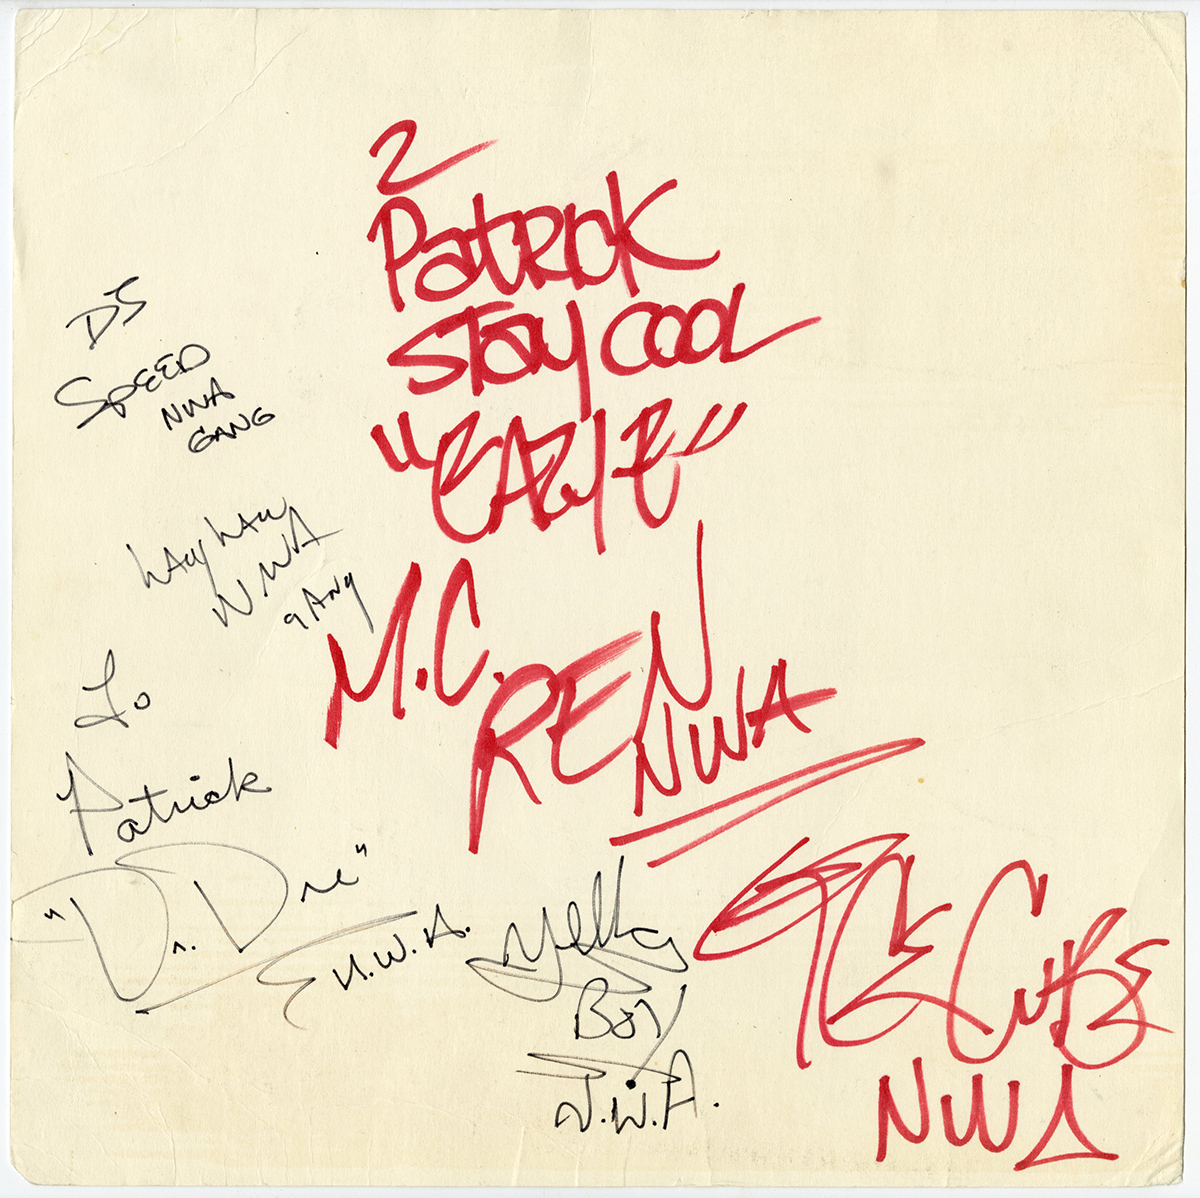 2
Patrick
Stay Cool
"Eazy E"
DJ
SPEED
NWA
GANG
LAW
NWA
gang
M.C. REN
NWA
To
Patrick
"Dr. Dre"
N.W.A.
Yella
Boy
N.W.A.
ICE CUBE
NWA